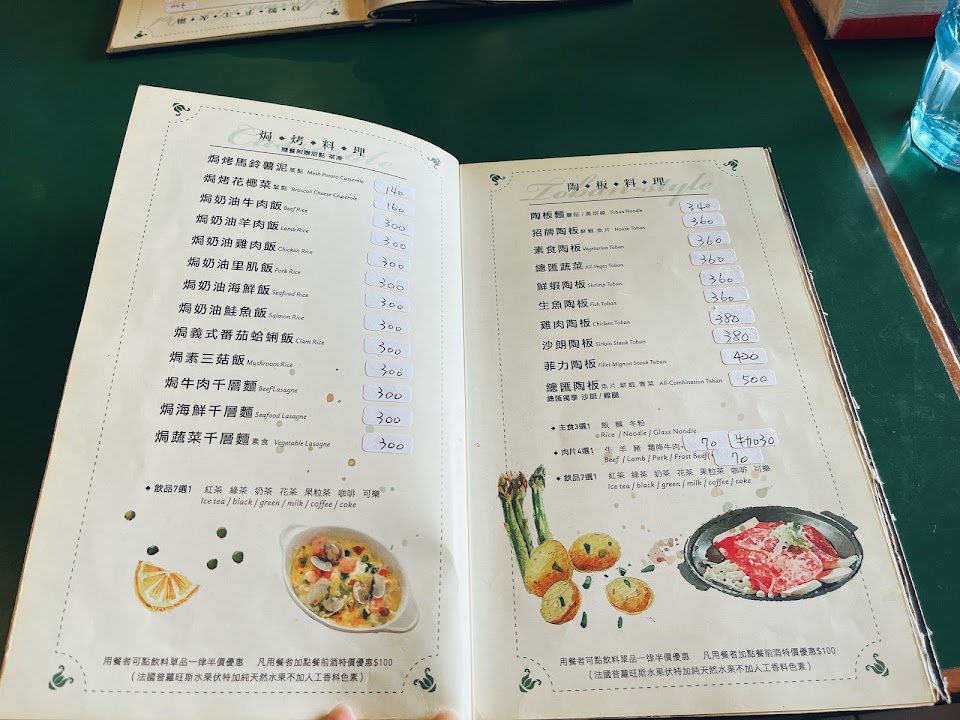 焗◆烤◆料◆理
隨餐附贈甜點 茶湯
焗烤馬鈴薯泥單點 Mash Potato Casserole 140
焗烤花椰菜單點 Broccoli Cheese Casserole 160
焗奶油牛肉飯 Beef Rice 300
焗奶油羊肉飯 Lamb Rice 300
焗奶油雞肉飯 Chicken Rice 300
焗奶油里肌飯 Pork Rice 300
焗奶油海鮮飯 Seafood Rice 300
焗奶油鮭魚飯 Salmon Rice 300
焗義式番茄蛤蜊飯 Clam Rice 300
焗素三菇飯 Mushroom Rice 300
焗牛肉千層麵 Beef Lasagne 300
焗海鮮千層麵 Seafood Lasagne 300
焗蔬菜千層麵 素食 Vegetable Lasagne 300
◆ 飲品7選1 紅茶 綠茶 奶茶 花茶 果粒茶 咖啡 可樂
Ice tea / black / green / milk / coffee / coke
用餐者可點飲料單品一律半價優惠 凡用餐者加點餐前酒特價優惠$100
(法國普羅旺斯水果伏特加純天然水果不加人工香料色素)
陶◆板◆料◆理
陶板麵 蘑菇/黑胡椒 Toban Noodle 340
招牌陶板 鮮蝦.魚片 House Toban 360
素食陶板 Vegetarian Toban 360
總匯蔬菜 All-Veges Toban 360
鮮蝦陶板 Shrimp Toban 360
生魚陶板 Fish Toban
雞肉陶板 Chicken Toban 380
沙朗陶板 Sirloin Steak Toban 380
菲力陶板 Fillet Mignon Steak Toban 420
總匯陶板 魚片.鮮蝦.青菜 All-Combination Toban 500
總匯獨享 沙朗/雞腿
◆ 主食3選1 飯 麵 冬粉
Rice / Noodle / Glass Noodle
◆ 肉片4選1 牛 羊 豬 霜降牛肉 70 牛加30
Beef / Lamb / Pork / Frost Beef 70
◆ 飲品7選1 紅茶 綠茶 奶茶 花茶 果粒茶 咖啡 可樂
Ice tea / black / green / milk / coffee / coke
用餐者可點飲料單品一律半價優惠 凡用餐者加點餐前酒特價優惠$100
(法國普羅旺斯水果伏特加純天然水果不加人工香料色素)